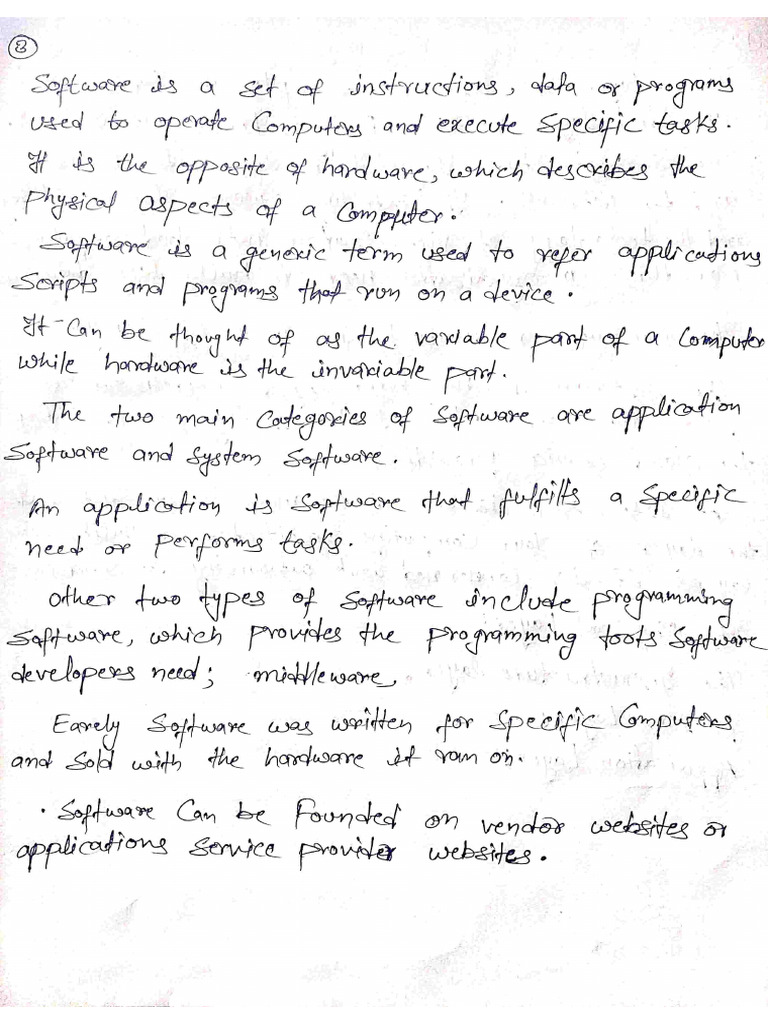 8
Software is a set of instructions, data or programs
used to operate Computers and execute specific tasks.
It is the opposite of hardware, which describes the
Physical aspects of a Computer.
Software is a generic term used to refer applications
Scripts and programs that run on a device.
It Can be thought of as the variable part of a Computer
while hardware is the invariable part.
The two main Categories of Software are application
Software and System Software.
An application is Software that fulfills a Specific
need or Performs tasks.
Other two types of Software include programming
Software, which provides the programming tools Software
developers need; middleware,
Earely Software was written for Specific Computers
and Sold with the hardware it ran on.
. Software Can be Founded on vendor websites or
applications Service provider websites.